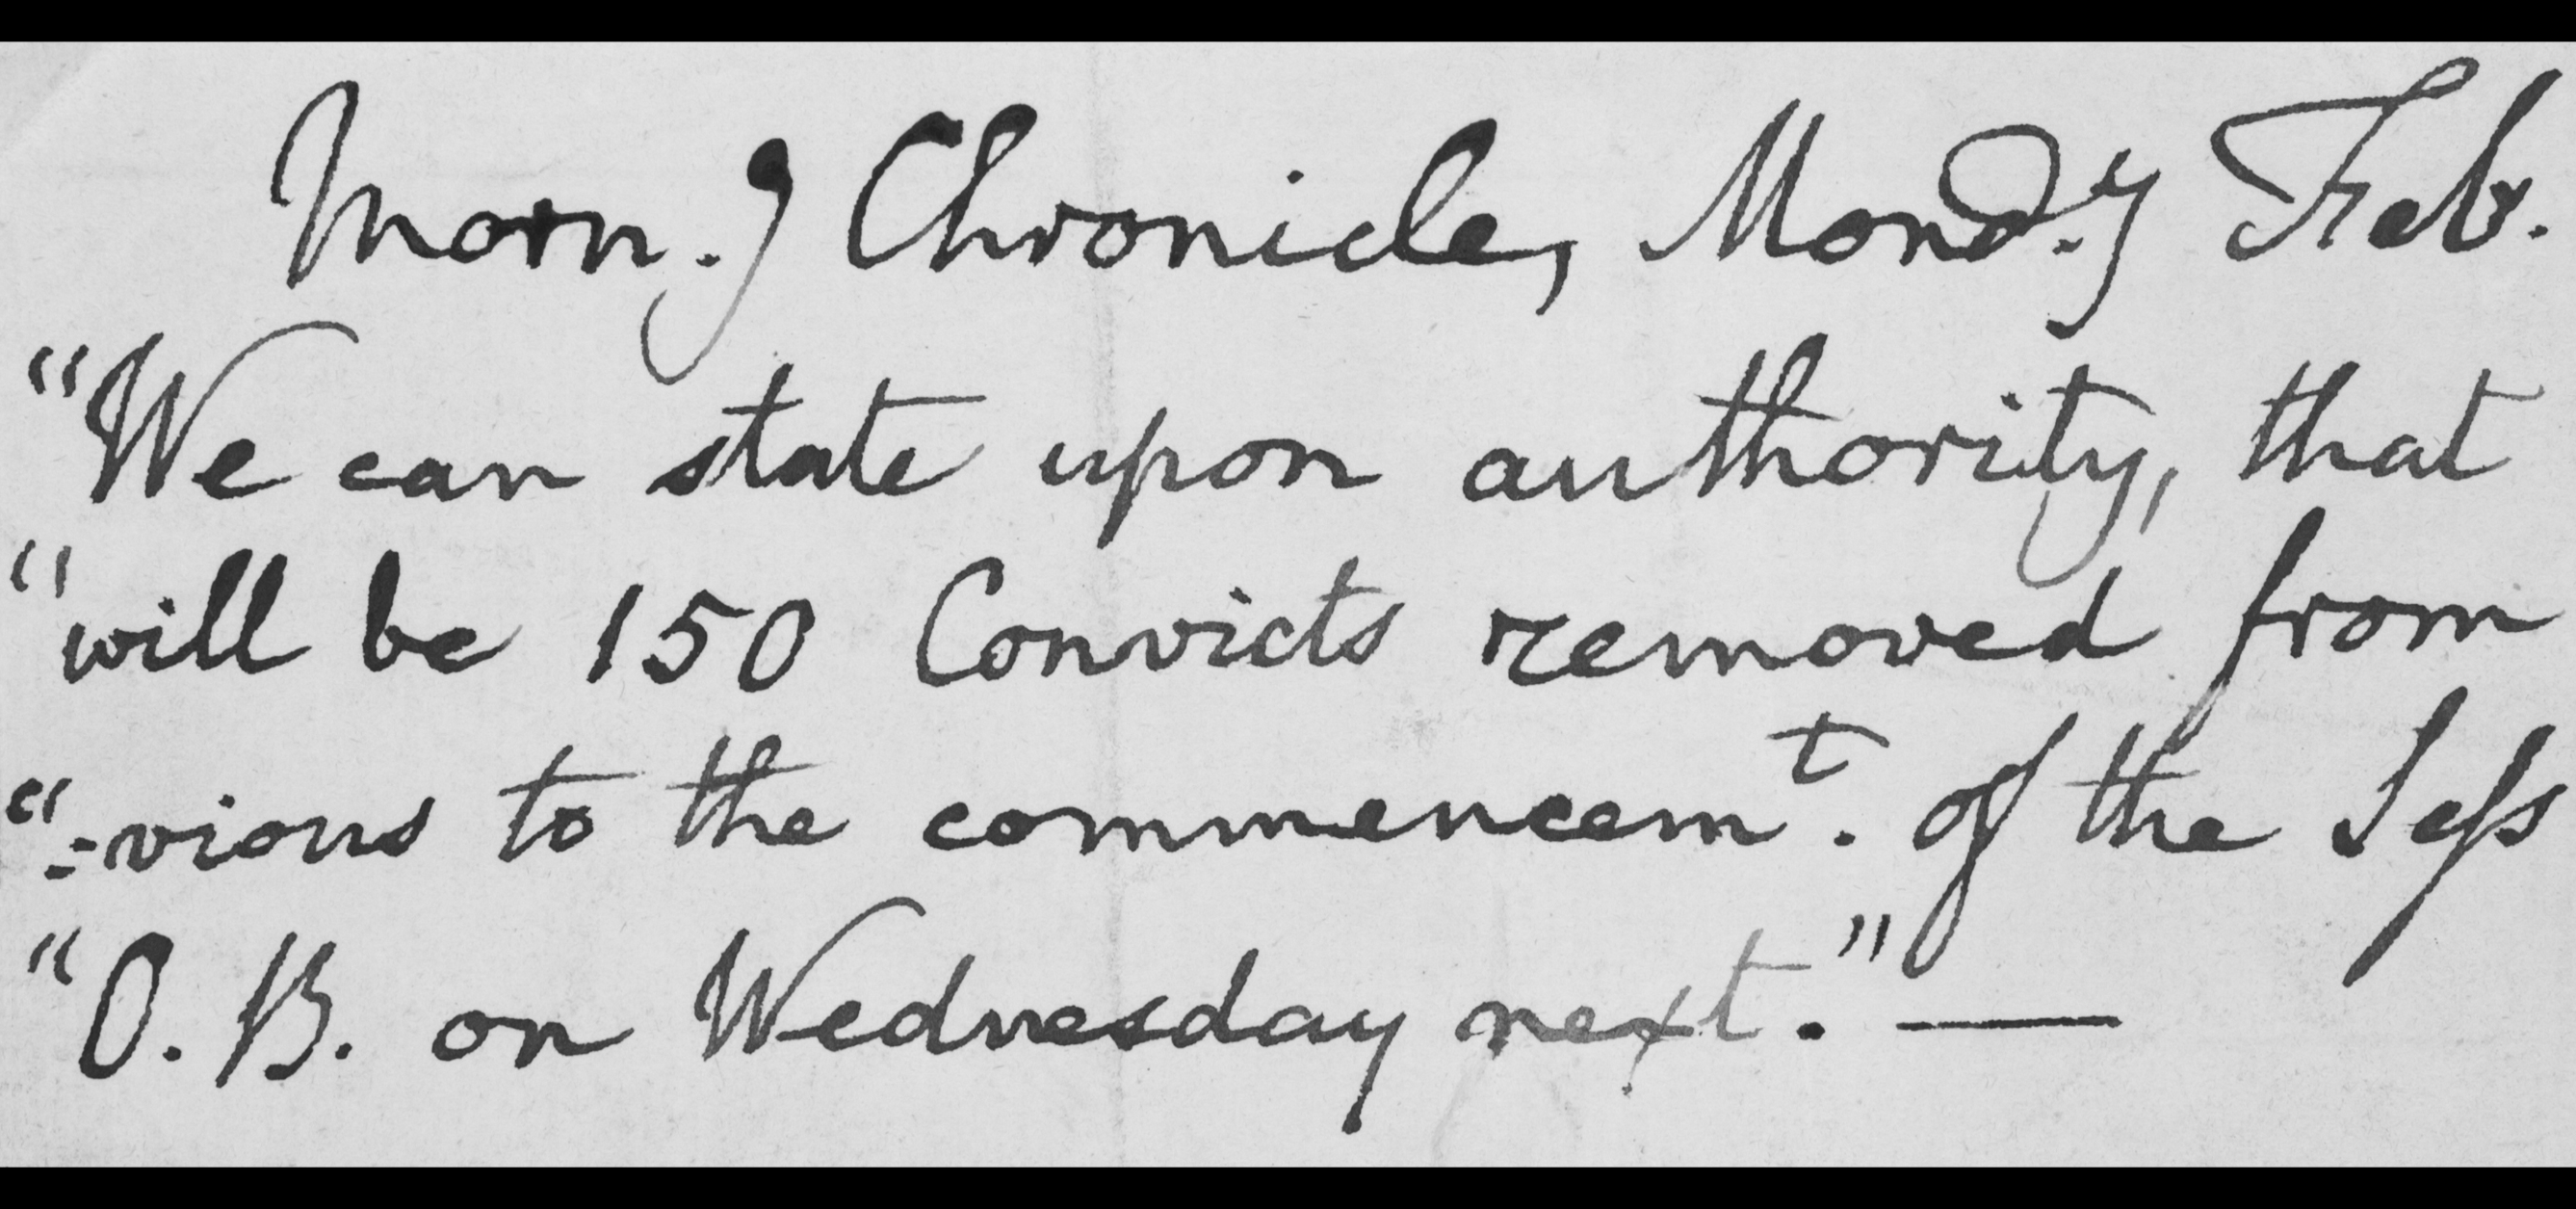 Morn.g Chronicle, Mond.y Feb.
"We can state upon authority, that
"will be 150 Convicts removed from
":vious to the commencem.t of the Sess
"O. B. on Wednesday next." —